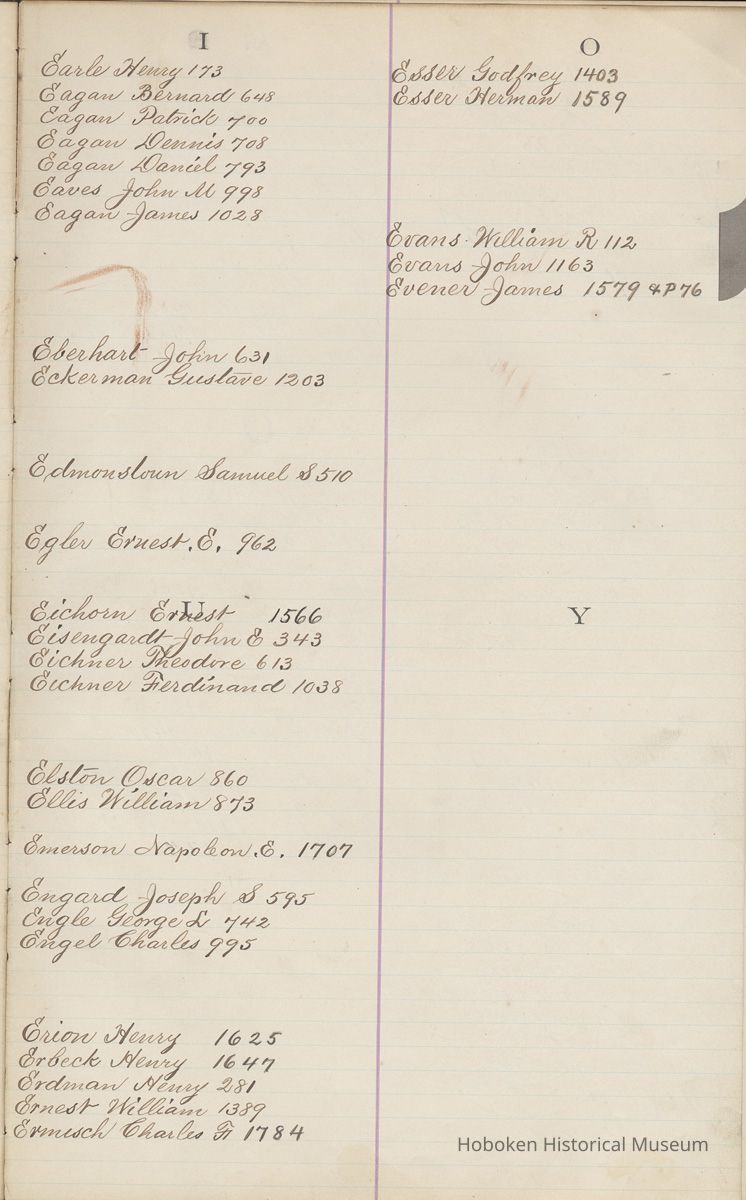 I
Earle Henry 173
Eagan Bernard 648
Eagan Patrick 700
Eagan Dennis 708
Eagan Daniel 793
Eaves John M 998
Eagan James 1028
Eberhart John 631
Eckerman Gustave 1203
Edmonstoun Samuel S 510
Egler Ernest. E. 962
U
Eichorn Ernest 1566
Eisengardt John E 343
Eichner Theodore 613
Eichner Ferdinand 1038
Elston Oscar 860
Ellis William 873
Emerson Napoleon. E. 1707
Engard Joseph S 595
Engle George L 742
Engel Charles 995
Erion Henry 1625
Erbeck Henry 1647
Erdman Henry 281
Ernest William 1389
Ermisch Charles F 1784
O
Esser Godfrey 1403
Esser Herman 1589
Evans William R 112
Evans John 1163
Evener James 1579 & P 76
Y
Hoboken Historical Museum